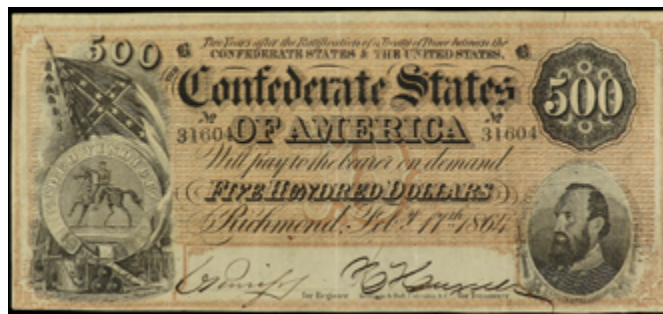 500
Two Years after the Ratification of a Treaty of Peace between the
CONFEDERATE STATES & THE UNITED STATES,
Confederate States
500
No No
31604 OF AMERICA 31604
Will pay to the bearer on demand
FIVE HUNDRED DOLLARS
Richmond, Feby. 17th 1864
for Register for Treasurer